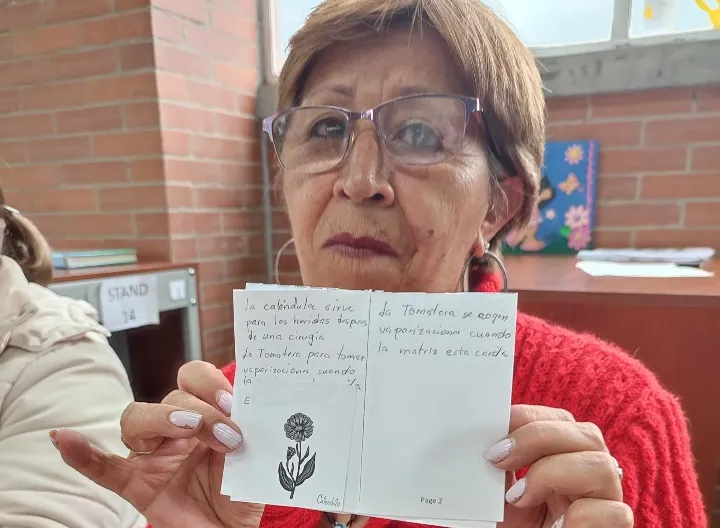 la caléndula sirve
para las heridas despues
de una cirugia
la Tomatera para tomar
vaporizaciona cuando
la
E
Caléndula
la Tomatera se cogen
vaporizaciona cuando
la matriz esta caida
Page 2
STAND